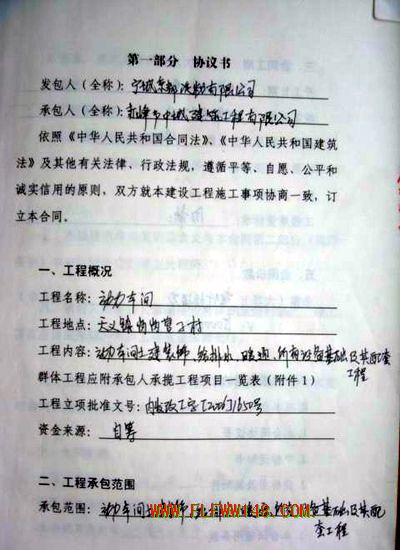 第一部分 协议书
发包人（全称）：宁城京都淀粉有限公司
承包人（全称）：赤峰市中城建筑工程有限公司
依照《中华人民共和国合同法》、《中华人民共和国建筑
法》及其他有关法律、行政法规，遵循平等、自愿、公平和
诚实信用的原则，双方就本建设工程施工事项协商一致，订
立本合同。
一、工程概况
工程名称：动力车间
工程地点：天义镇 村
工程内容：动力车间土建装饰、给排水、暖通、所有设备基础及其配套
工程
群体工程应附承包人承揽工程项目一览表（附件1）
工程立项批准文号：
资金来源：自筹
二、工程承包范围
承包范围：动力车间土建装饰、给排水、暖通、所有设备基础及其配
套工程